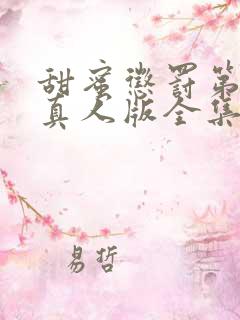 甜蜜惩罚第
真人版全集
易哲